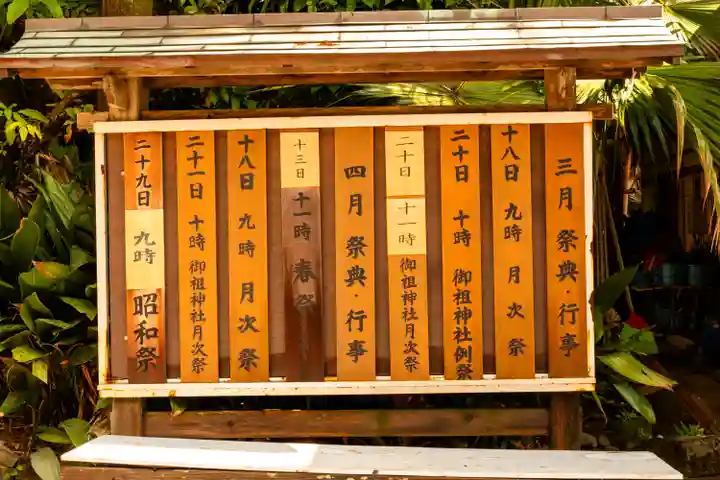 三月祭典・行事
十八日 九時 月次祭
二十日 十時 御祖神社例祭
二十日 十一時 御祖神社月次祭
四月祭典・行事
十三日 十一時 春祭
十八日 九時 月次祭
二十一日 十時 御祖神社月次祭
二十九日 九時 昭和祭